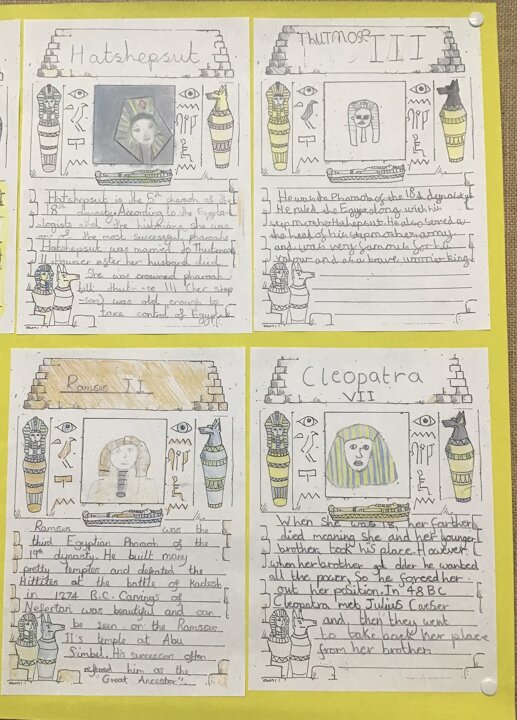 Hatshepsut
Hatshepsut is the 5th pharoh of the
18th dynasty. According to the Egypto-
logists and the historians, she was
one of the most successful pharaohs
Hatshepsut was married to Thutmose
II However after her husband died
She was crowned pharoah
till III (her step
son) was old enough to
take control of Egypt.
Thutmose III
He was the Pharaoh of the 18th dynasty
He ruled the Egypt along with his
step mother Hatshepsut. He also served as
the head of his stepmothers army
and was very famous for his
valour and as a brave worrier king
Ramses II
Ramses was the
third Egyptian Pharoh of the
19th dynasty. He built many
pretty temples and defeated the
Hittites at the battle of Kadesh
in 1274 B.C. Carvings of
Nefertari was beautiful and can
be seen on the Ramsses
II's temple at Abu
Simbel. His successor often
refered him as the
"Great Ancestor".
Cleopatra
VII
When she was 18, her farther
died meaning she and her younger
brother took his place. However
when her brother got older he wanted
all the power, So he forced her
out her position. In 48 BC
Cleopatra met Julius Caeser
and then they went
to take back her place
from her brother